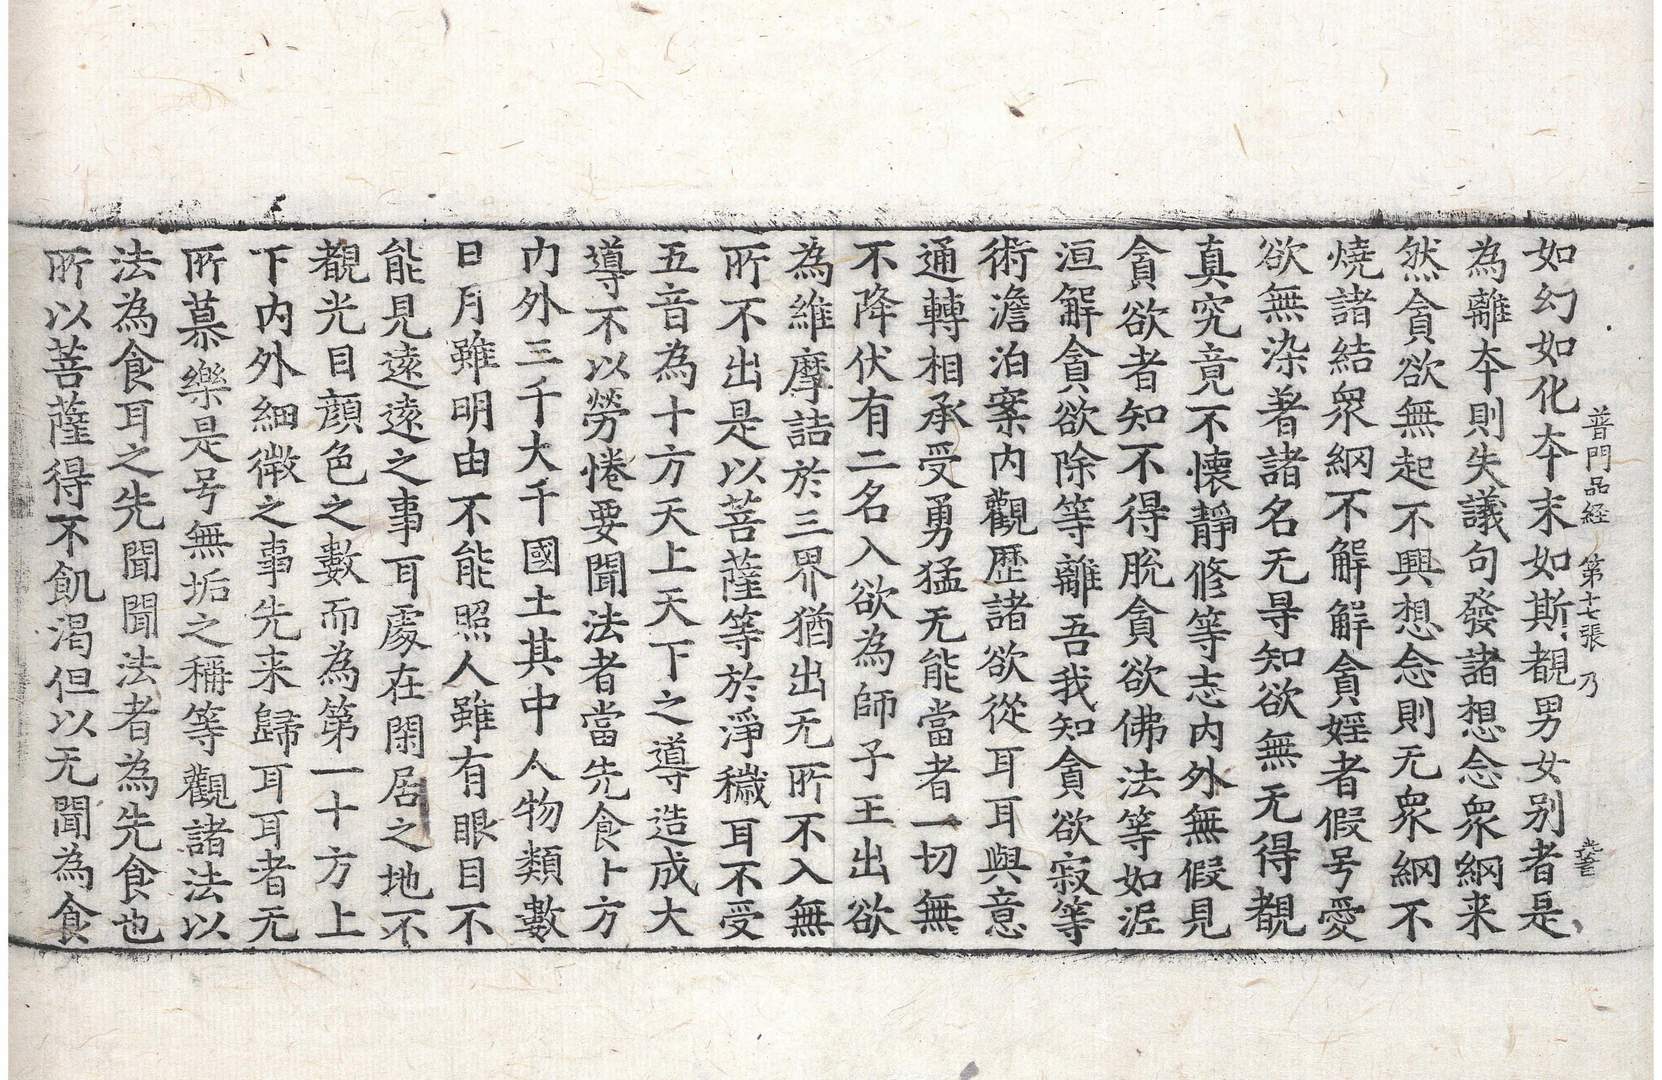 普門品経　第十七張　乃
如幻如化夲末如斯覩男女别者是
為離夲則失議句發諸想念衆網来
然貪欲無起不興想念則无衆網不
燒諸結衆網不解解貪婬者假号愛
欲無染著諸名无㝵知欲無无得覩
真究竟不懷靜修等志内外無假見
貪欲者知不得脫貪欲佛法等如泥
洹解貪欲除等離吾我知貪欲寂等
術澹泊案内觀歷諸欲從耳耳與意
通轉相承受勇猛无能當者一切無
不降伏有二名入欲為師子王出欲
為維摩詰於三界猶出无所不入無
所不出是以菩薩等於淨穢耳不受
五音為十方天上天下之導造成大
導不以勞惓要聞法者當先食卜方
内外三千大千國土其中人物類數
日月雖明由不能照人雖有眼目不
能見遠遠之事耳處在閑居之地不
覩光目顔色之數而為第一十方上
下内外細微之事先来歸耳耳者无
所慕樂是号無垢之稱等觀諸法以
法為食耳之先聞聞法者為先食也
所以菩薩得不飢渴但以无聞為食